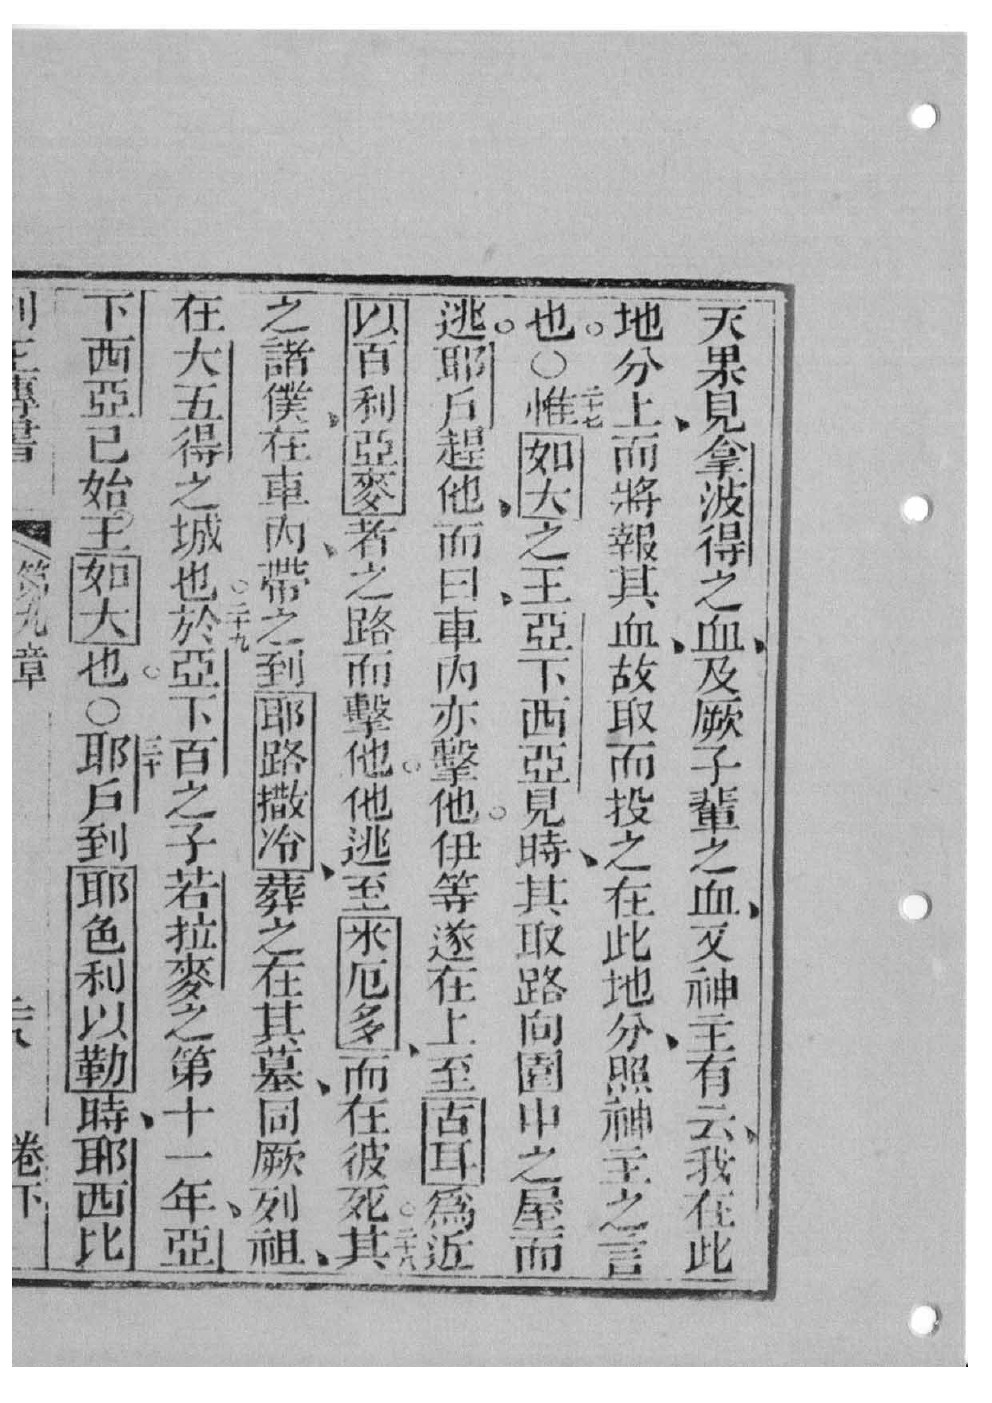 天果見拿波得之血、及厥子輩之血、又神主有云、我在此
地分上、而將報其血、故取而投之在此地分、照神主之言
也。○二十七惟如大之王亞下西亞見時、其取路向園中之屋而
逃。耶戶趕他、而曰、車內亦擊他。伊等遂在上至古耳爲近
以百利亞麥者之路而擊他。他逃至米厄多、而在彼死。二十八其
之諸僕、在車內、帶之到耶路撒冷、葬之在其墓、同厥列祖、
在大五得之城也。二十九於亞下百之子若拉麥之第十一年、亞
下西亞已始王如大也。○三十耶戶到耶色利以勒時、耶西比
列王傳書 第九章 卷下